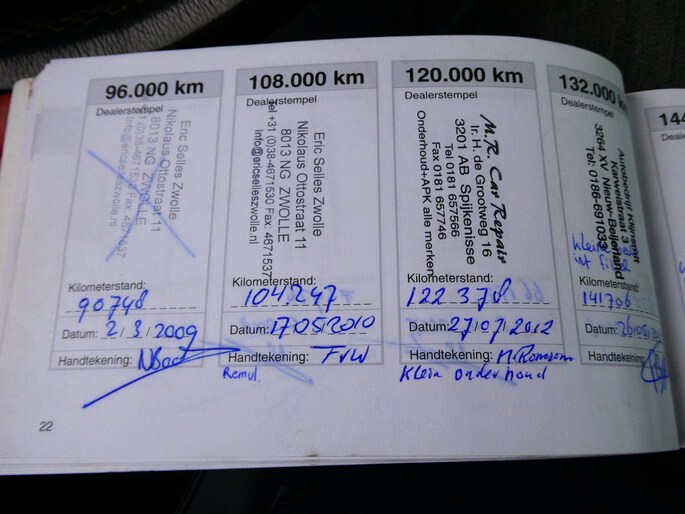 96.000 km
Dealerstempel
Eric Selles Zwolle
Nikolaus Ottostraat 11
8013 NG ZWOLLE
+31 (0)38-4671530 Fax: 4671537
info@ericselleszwolle.nl
Kilometerstand:
90748
Datum: 2/3/2009
Handtekening:
108.000 km
Dealerstempel
Eric Selles Zwolle
Nikolaus Ottostraat 11
8013 NG ZWOLLE
tel +31 (0)38-4671530 Fax: 4671537
info@ericselleszwolle.nl
Kilometerstand:
104247
Datum: 17052010
Handtekening: FvW
Remvl.
120.000 km
Dealerstempel
M.R. Car Repair
Ir. H. de Grootweg 16
3201 AB Spijkenisse
Tel 0181 657566
Fax 0181 657746
Onderhoud+APK alle merken
Kilometerstand:
122 378
Datum: 27/07/2012
Handtekening:
Klein onderhoud
132.000 km
Dealerstempel
Autobedrijf Klijnstra
Karweistraat 3
3264 XV Nieuw-Beijerland
Tel: 0186-691033
Kleine
Kilometerstand:
141706
Datum:
Handtekening:
144
Deale
22